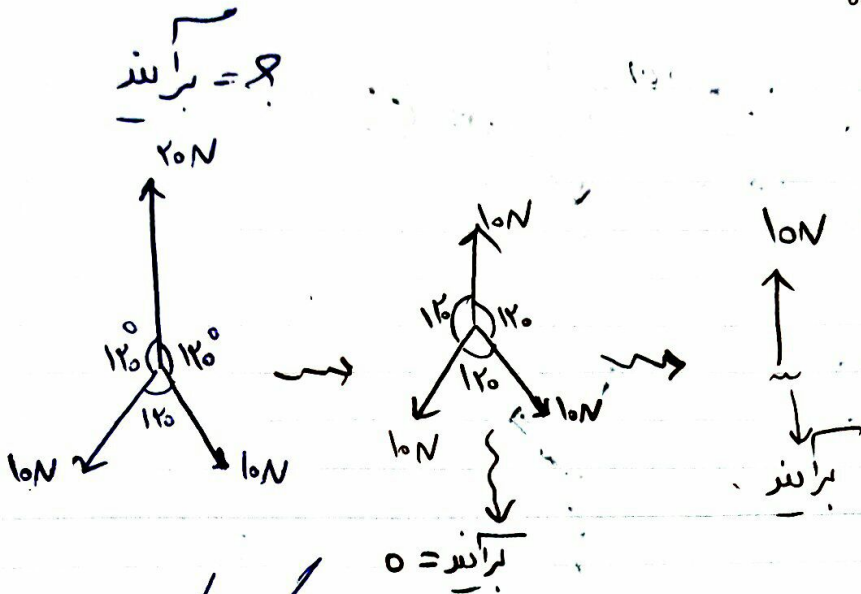 برآیند = ?
۲۰N
۱۲۰° ۱۲۰°
۱۲۰
۱۰N ۱۰N
۱۰N
۱۲۰ ۱۲۰
۱۲۰
۱۰N ۱۰N
برآیند = ۰
۱۰N
برآیند